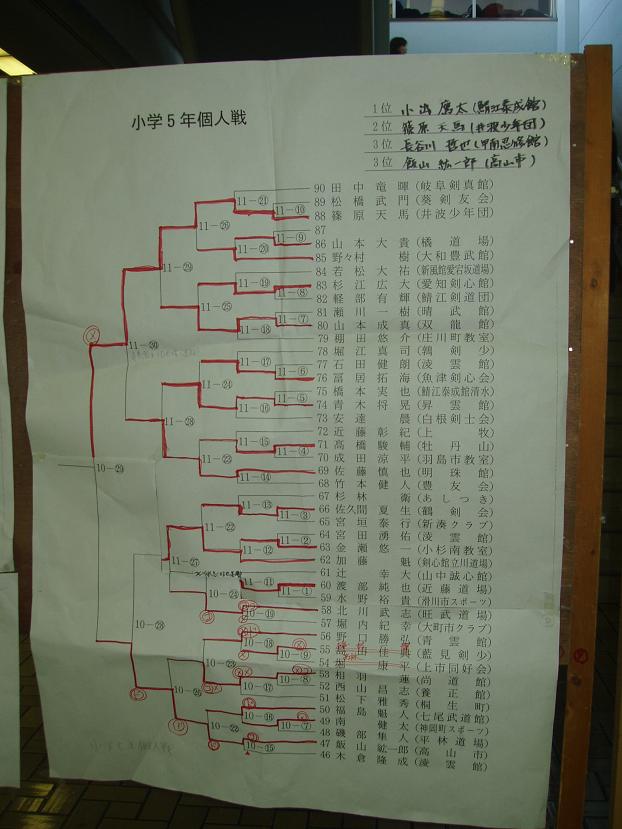 小学5年個人戦
1位 小出 鷹太(鯖江泰成館)
2位 篠原 天馬(井波少年団)
3位 長谷川 哲也(甲南忍勝館)
3位 飯山 紘一郎(高山市)
90 田中竜暉(岐阜剣真館)
89 松橋武門(葵剣友会)
88 篠原天馬(井波少年団)
87
86 山本大貴(橘道場)
85 野々村樹(大和豊武館)
84 若松大祐(新風館愛宕坂道場)
83 杉江広大(愛知剣心館)
82 軽部有輝(鯖江剣道団)
81 瀬川一樹(晴武館)
80 山本成真(双龍館)
79 棚田悠介(庄川町教室)
78 堀江真司(鶉剣少)
77 石田健朗(凌雲館)
76 冨居拓海(魚津剣心会)
75 橋本実也(鯖江泰成館清水)
74 青木将晃(昇雲館)
73 安達晨(白根剣士会)
72 近藤彰紀(上牧)
71 高橋駿輔(牡丹山)
70 成田涼平(羽島市教室)
69 佐藤慎也(明珠館)
68 竹本健人(豊友会)
67 杉林衛(あしつき)
66 佐久間夏生(鶴剣会)
65 宮垣泰行(新湊クラブ)
64 宮田湧佑(凌雲館)
63 金瀬悠一(小杉南教室)
62 加藤魁(剣心館立川道場)
61 辻幸大(山中誠心館)
60 渡部純也(近藤道場)
59 水野裕貴(滑川市スポーツ)
58 北川武志(旺武道場)
57 堀内紀幸(大町市クラブ)
56 野口勝弘(青雲館)
55 佳典(藍見剣少)
54 堀康平(上市同好会)
53 相羽蓮(尚道館)
52 西山昌志(養正館)
51 松下雅秀(桐生町)
50 福島魁人(七尾武道館)
49 南健太(神岡町スポーツ)
48 磯部隼人(平林道場)
47 飯山紘一郎(高山市)
46 木倉隆成(凌雲館)
11-㉑
11-⑩
11-㉖
11-⑨
11-⑳
11-㉙
11-⑲
11-⑧
11-㉕
11-⑦
11-⑱
11-㉚
11-⑰
11-⑥
11-㉔
11-⑤
11-⑯
11-㉘
11-⑮
11-④
11-㉓
11-⑭
10-㉙
11-⑬
11-③
11-㉒
11-②
11-⑫
11-㉗
11-⑪
11-①
10-㉔
10-⑲
10-㉘
10-⑱
10-㉓
10-⑨
10-⑧
10-⑰
10-㉖
10-⑯
10-⑦
10-㉒
10-⑮